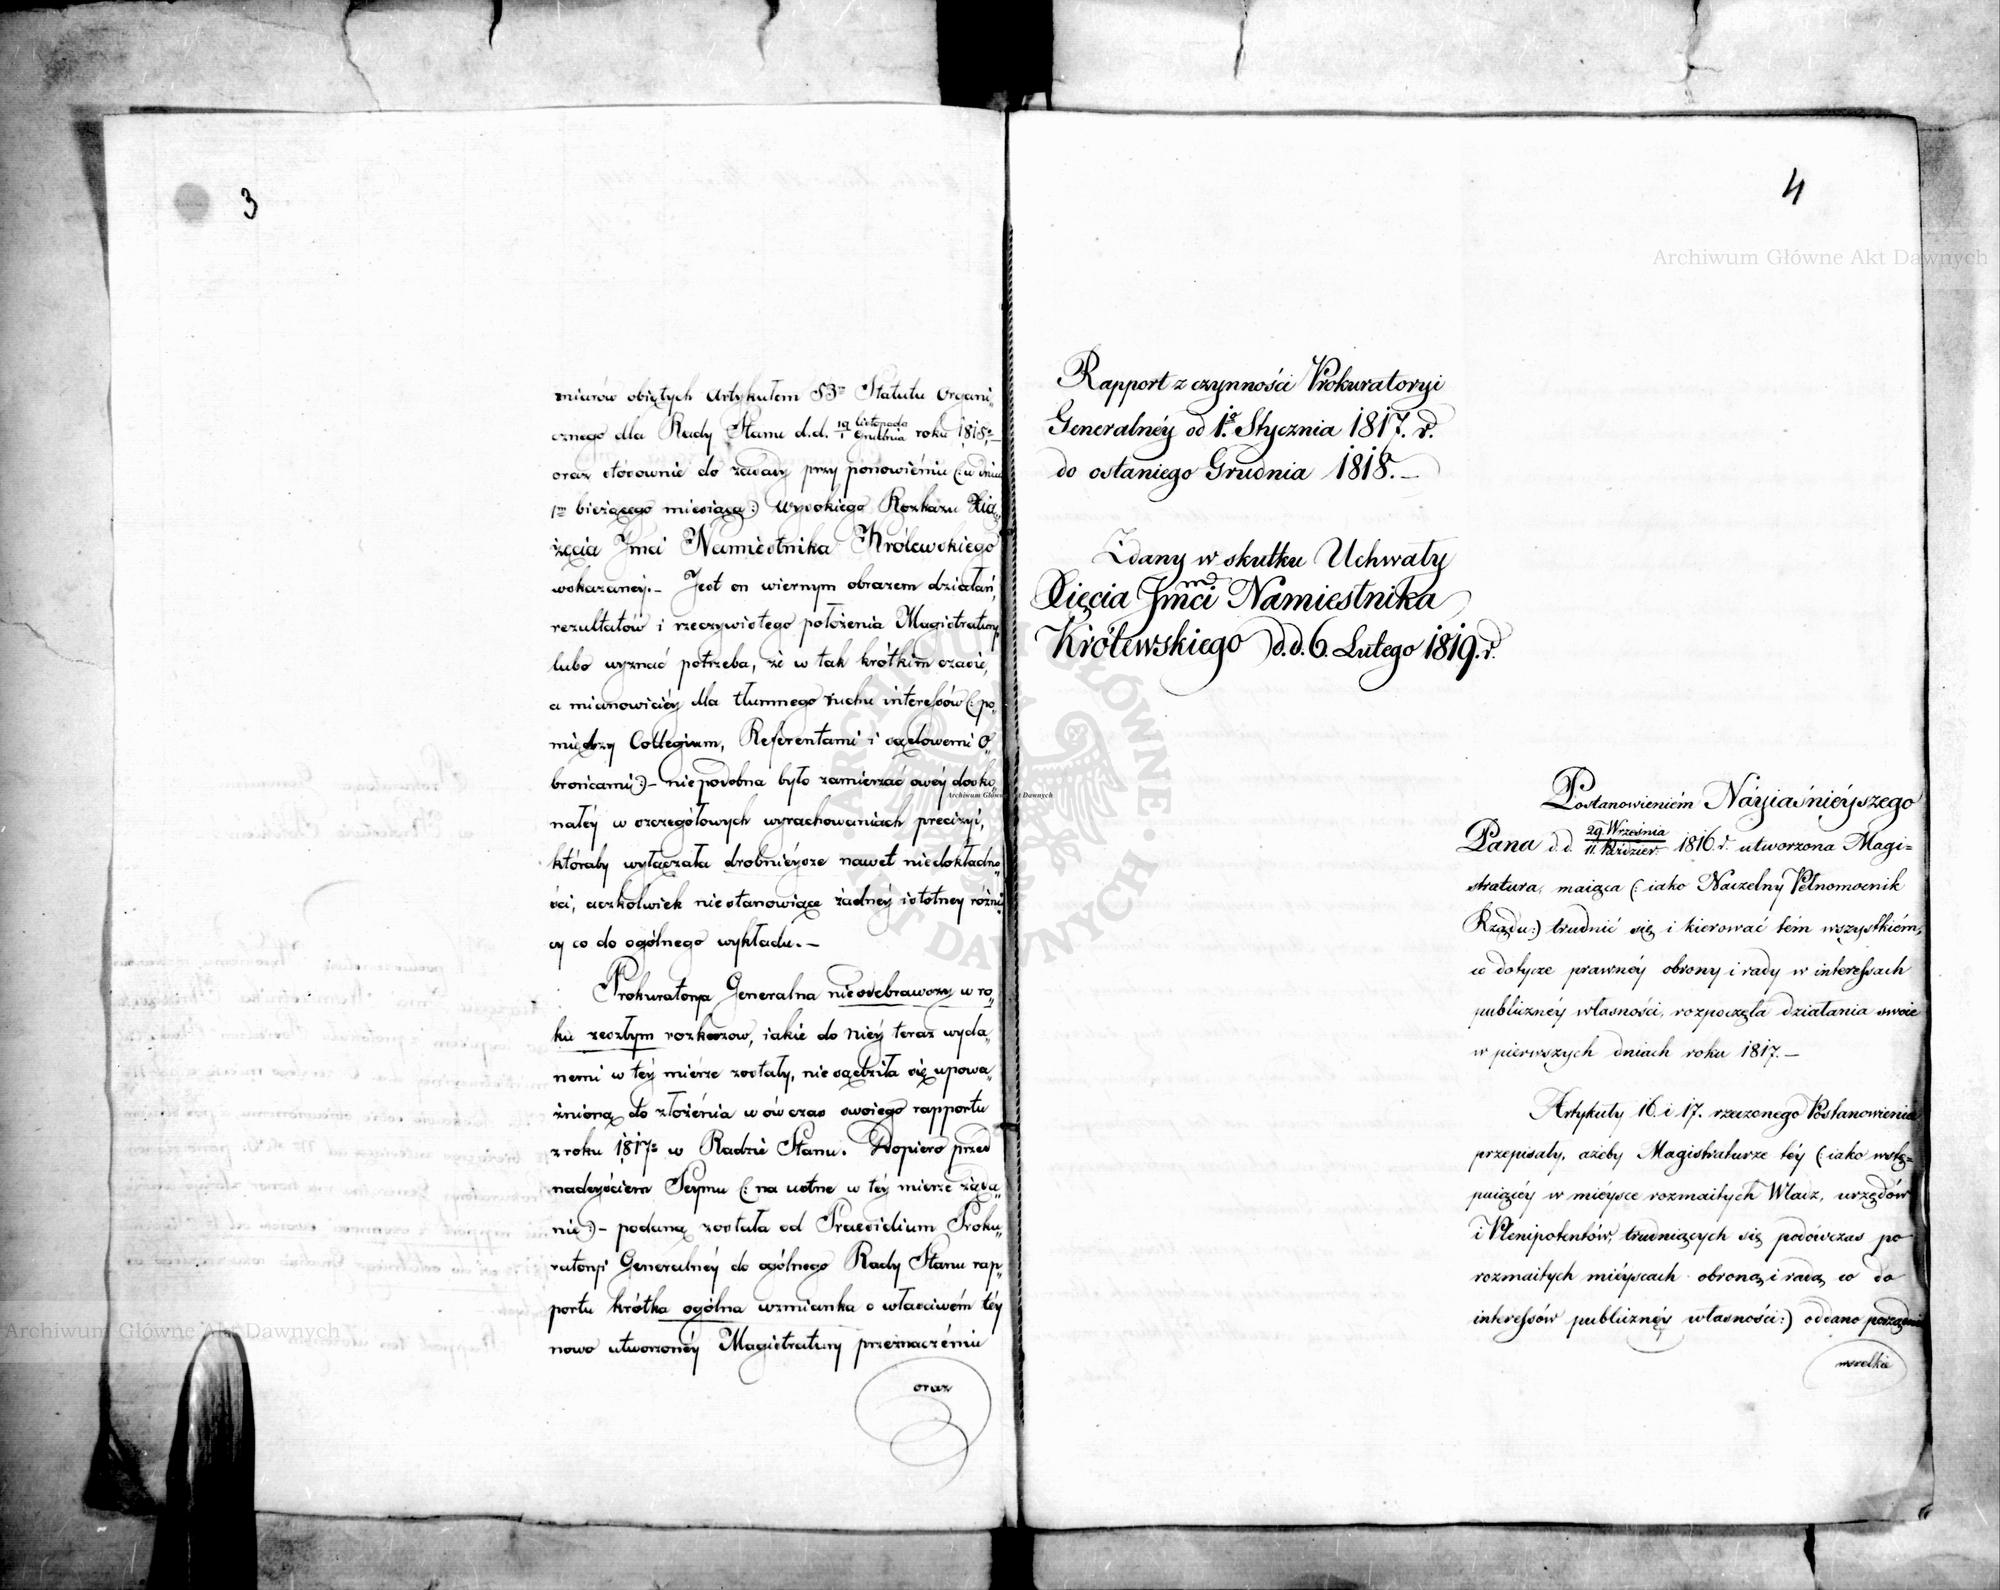 3
miarów obiętych Artykułem 53m Statutu Organi„
cznego dla Rady Stanu d.d. 19 Listopada / 1 Grudnia roku 1815.
oraz stosownie do zasady przy ponowieniu (: w dniu
1m bieżącego miesiąca :) Wysokiego Rozkazu Xią„
żęcia Jmci Namiestnika Królewskiego
wskazaney. – Jest on wiernym obrazem działań,
rezultatów i rzeczywistego położenia Magistratury
lubo wyznać potrzeba, że w tak krótkim czasie,
a mianowiciéy dla tłumnego ruchu interessów (: po„
między Collegium, Referentami i sądowemi O„
brońcami :) – niepodobna było zamierzać owéy dosko„
nałéy w szczegółowych wyrachowaniach precizyi,
któraby wyłączała drobniéysze nawet niedokładno„
ści, aczkolwiek niestanowiące żadnéy istotney różni„
cy co do ogólnego wykładu. –
Prokuratorya Generalna nieodebrawszy w ro„
ku zeszłym rozkazow, iakie do Niéy teraz wyda„
nemi w téy mierze zostały, nie sądziła się upowa„
żnioną do złożenia w ów czas swoiego rapportu
z roku 1817o w Radzie Stanu. Dopiero przed
nadeyściem Seymu (: na ustne w téy mierze żąda„
nie :) – podaną została od Praesidium Proku„
ratoryi Generalnéy do ogólnego Rady Stanu rap„
portu krótka ogólna wzmianka o właściwém téy
nowo utworzonéy Magistratury przeznaczéniu
oraz
4
Rapport z czynności Prokuratoryi
Generalnéy od 1go Stycznia 1817. r.
do ostaniego Grudnia 1818. –
Zdany w skutku Uchwały
Xięcia Jmci Namiestnika
Królewskiego d.d. 6. Lutego 1819. r.
Postanowieniém Náyiaśniéyszego
Pana d.d. 29 Września / 11. Paździer. 1816. r. utworzona Magi=
stratura, maiąca (: iako Naczelny Pełnomocnik
Rządu :) trudnić się i kierować tém wszystkiém,
co dotycze prawnéy obrony i rady w interessach
publicznéy własności, rozpoczęła działania swoie
w pierwszych dniach roku 1817. –
Artykuły 16. i 17. rzeczonego Postanowienia
przepisały, ażeby Magistraturze téy (: iako wstę=
puiącéy w miéysce rozmaitych Władz, urzędów
i Plenipotentów, trudniących się podówczas po
rozmaitych miéyscach obroną i radą co do
interessów publicznéy własności :) oddano porządnie
wszelkie
Archiwum Główne Akt Dawnych
Archiwum Główne Akt Dawnych
Archiwum Główne Akt Dawnych
ARCHIWUM GŁÓWNE AKT DAWNYCH